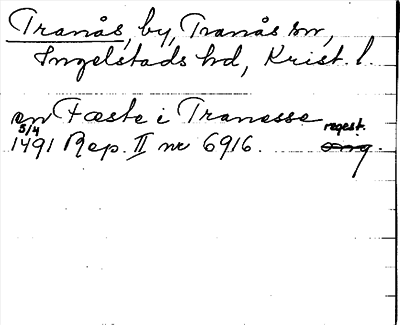 Tranås, by, Tranås sn,
Ingelstads hd, Krist. l.
en Fæste i Tranesse
5/4 regest.
1491 Rep. II nr 6916. orig.